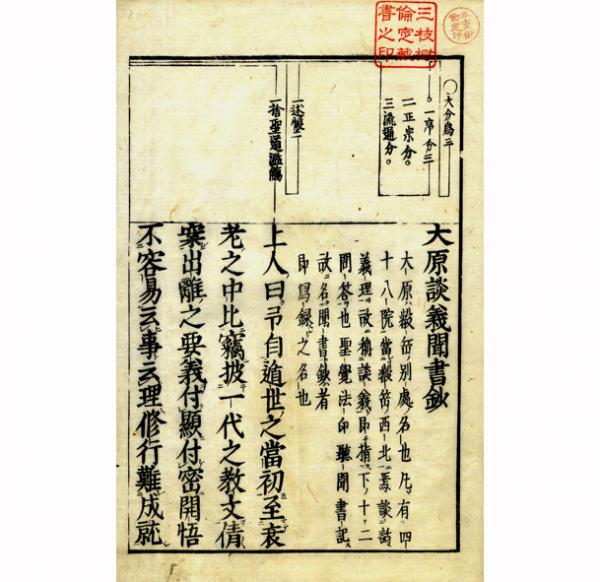 三枝樹
倫定藏
書之印
○大分爲三
一序分三
二正宗分。
三流通分。
一捨聖道濫觴
大原談義聞書鈔
大原叡岳別處名也凡有四
十八院當叡岳西北焉談話
義理故稱談義即指下十二
問答也聖覺法印聽聞書記
故名聞書鈔者
即寫録之名也
上人曰予自遁世之當初至衰
老之中比竊披一代之教文倩
案出離之要義付顯付密開悟
不容易云事云理修行難成就